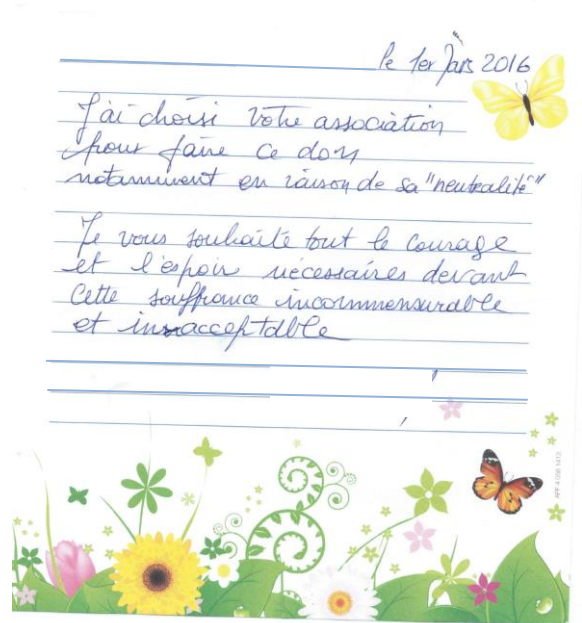 le 1er Mars 2016
J'ai choisi votre association
pour faire ce don
notamment en raison de sa "neutralité"
Je vous souhaite tout le courage
et l'espoir nécessaires devant
cette souffrance incommensurable
et inacceptable